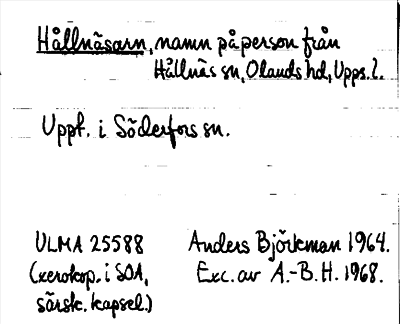 Hållnäsarn, namn på person från
Hållnäs sn, Olands hd, Upps. l.
Uppt. i Söderfors sn.
ULMA 25588 Anders Björkman 1964.
(xerokop. i SOA, Exc. av A.-B. H. 1968.
särsk. kapsel.)